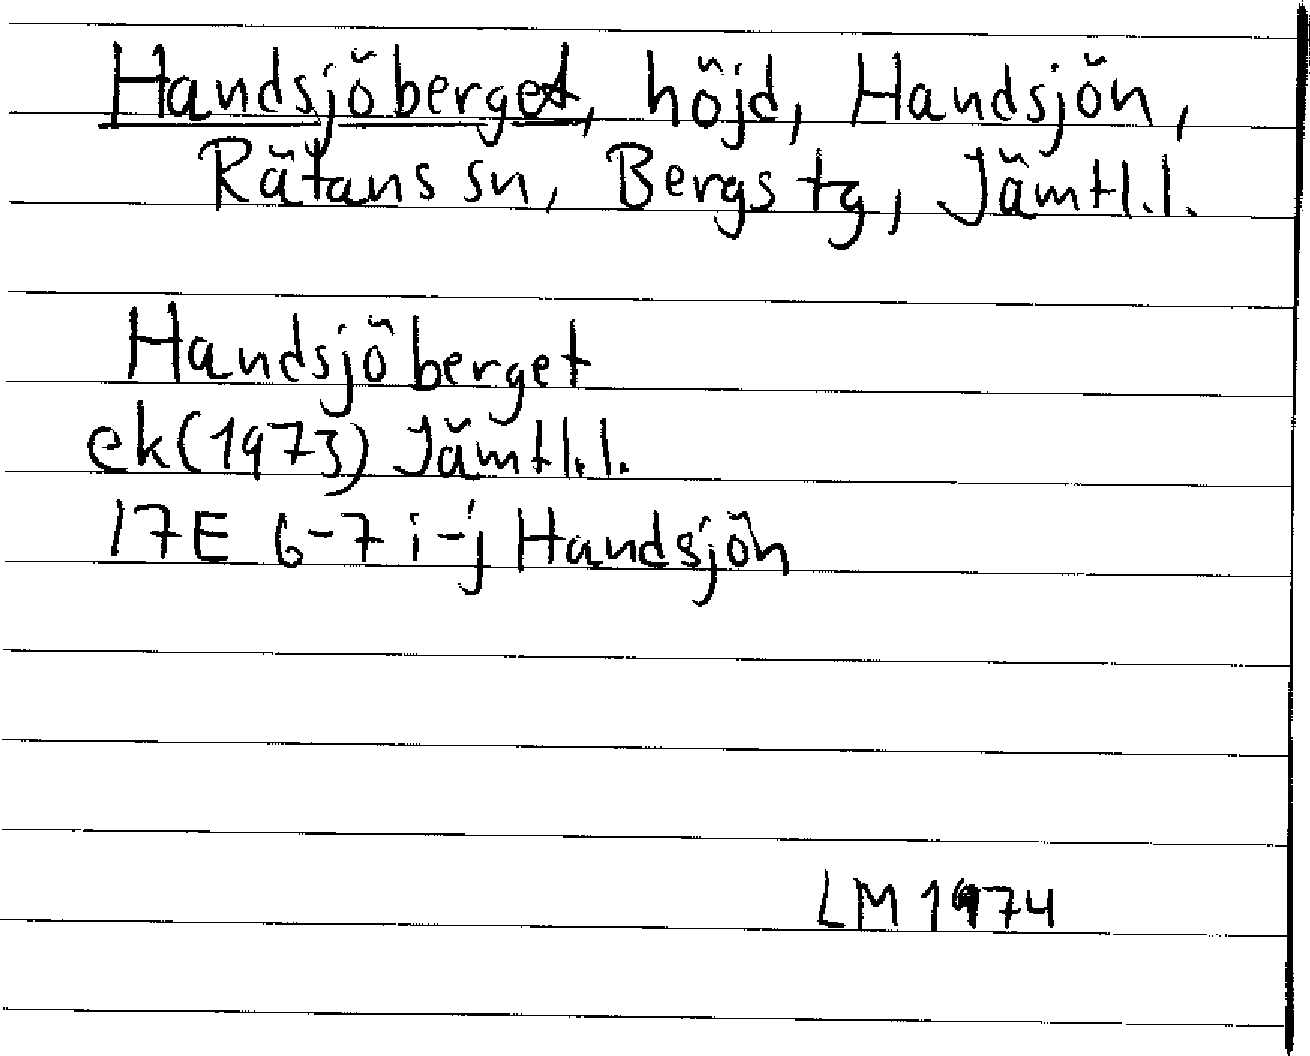 Handsjöberget, höjd, Handsjön,
Rätans sn, Bergs tg, Jämtl.l.
Handsjöberget
ek(1973) Jämtl.l.
17E 6-7 i-j Handsjön
LM 1974